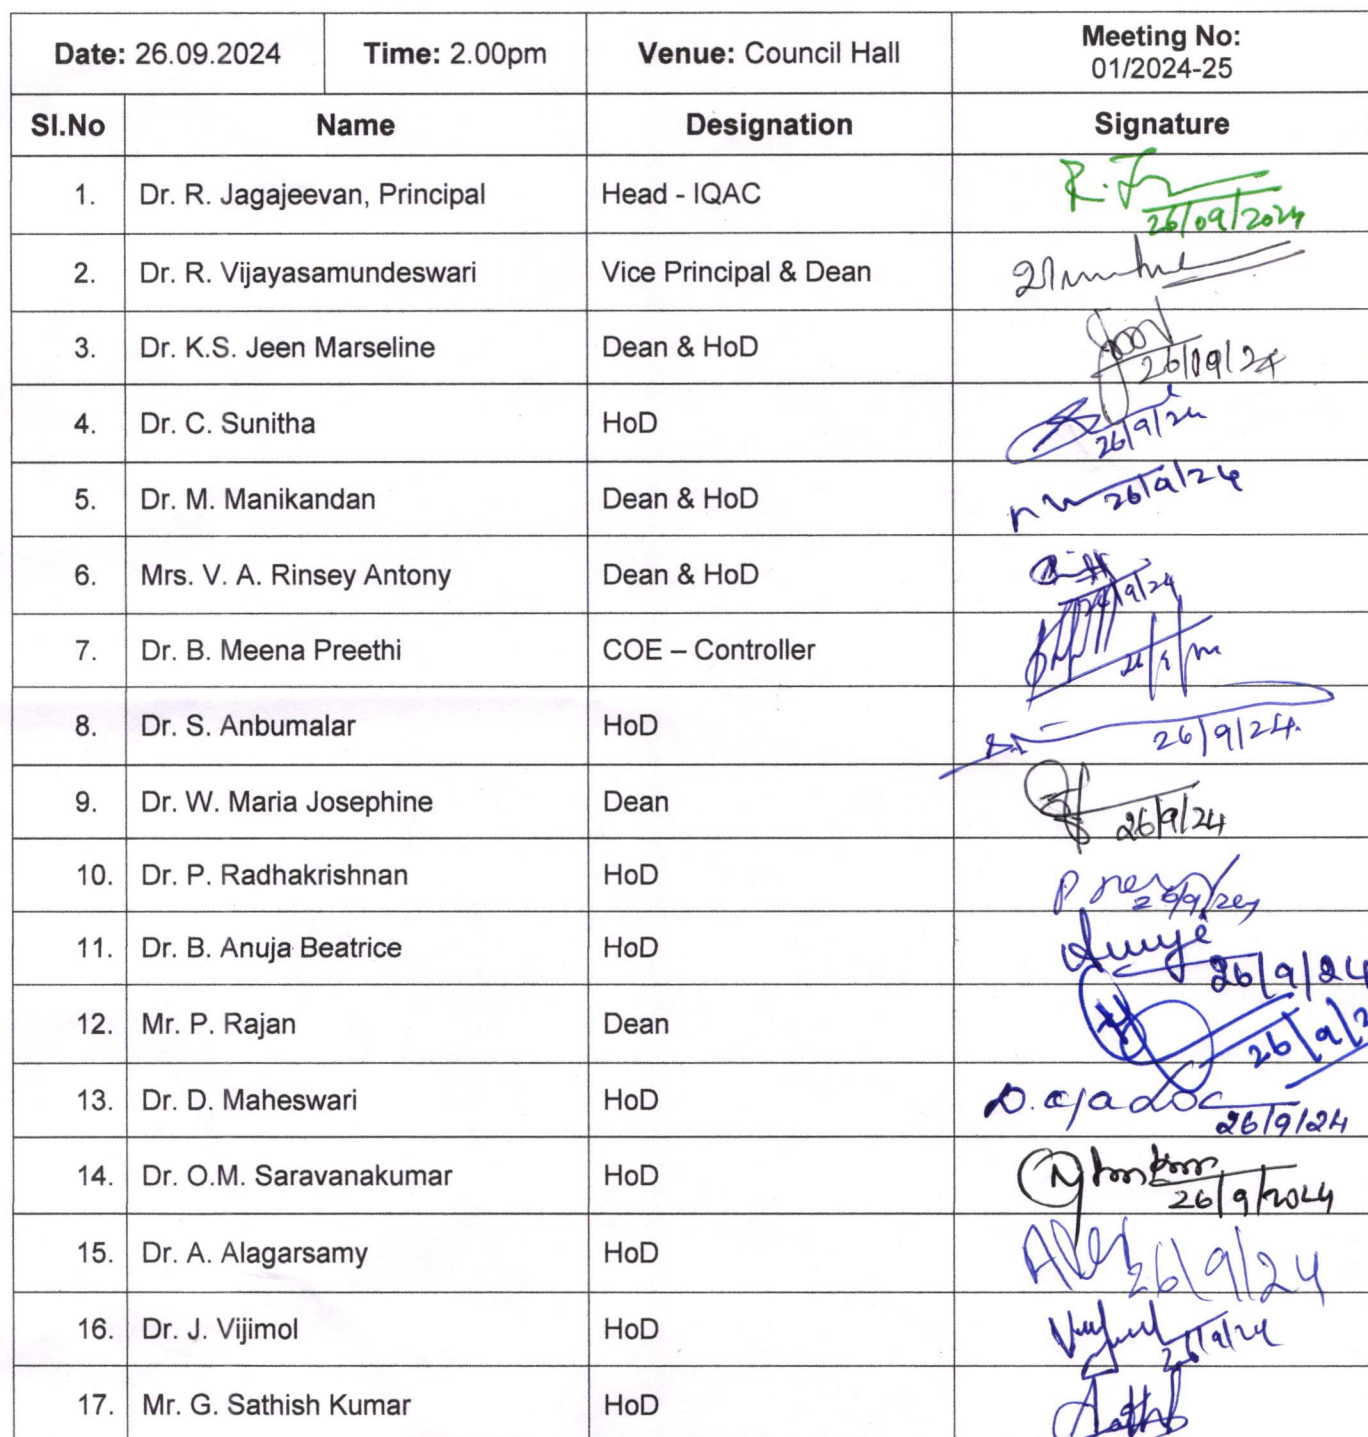 Date: 26.09.2024 Time: 2.00pm Venue: Council Hall Meeting No:
01/2024-25
Sl.No Name Designation Signature
1. Dr. R. Jagajeevan, Principal Head - IQAC R. J
26/09/2024
2. Dr. R. Vijayasamundeswari Vice Principal & Dean
3. Dr. K.S. Jeen Marseline Dean & HoD
26/09/24
4. Dr. C. Sunitha HoD
26/9/24
5. Dr. M. Manikandan Dean & HoD 26/9/24
6. Mrs. V. A. Rinsey Antony Dean & HoD
7. Dr. B. Meena Preethi COE – Controller
8. Dr. S. Anbumalar HoD 26/9/24.
9. Dr. W. Maria Josephine Dean 26/9/24
10. Dr. P. Radhakrishnan HoD
26/9/24
11. Dr. B. Anuja Beatrice HoD
26/9/24
12. Mr. P. Rajan Dean 26/9/2
13. Dr. D. Maheswari HoD
26/9/24
14. Dr. O.M. Saravanakumar HoD
26/9/2024
15. Dr. A. Alagarsamy HoD 26/9/24
16. Dr. J. Vijimol HoD
26/9/24
17. Mr. G. Sathish Kumar HoD